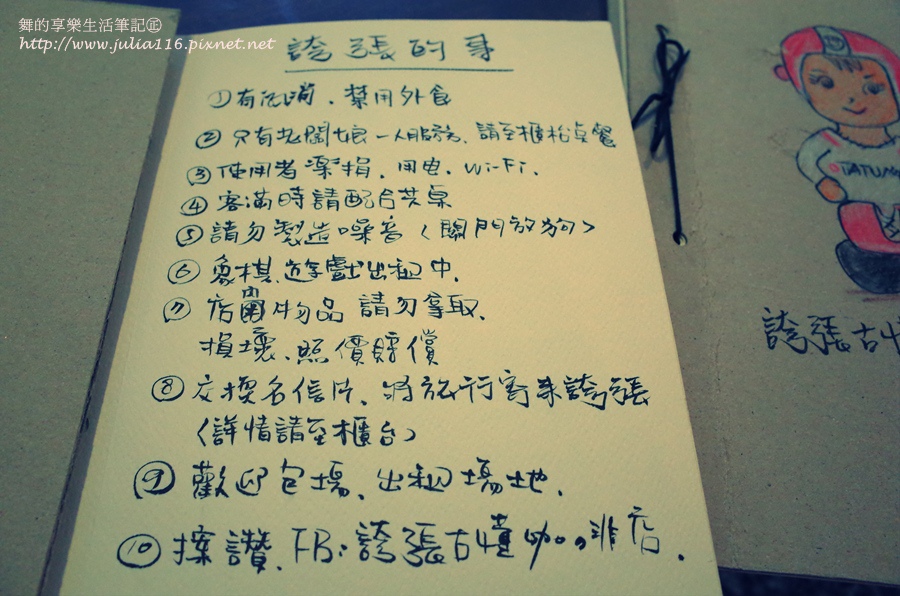 舞的享樂生活筆記㊣
http://www.julia116.pixnet.net
誇張的事
①有低消、禁用外食
②只有老闆娘一人服務、請至櫃枱點餐
③使用者樂捐、用电、Wi-Fi.
④客滿時請配合共桌
⑤請勿製造噪音(關門放狗)
⑥象棋.遊戲出租中.
⑦店內物品 請勿拿取.
損壞、照價賠償
⑧交換名信片、將旅行寄來誇張
(詳情請至櫃台)
⑨歡迎包場、出租場地.
⑩按讚.FB:誇張古懂咖啡店.
TATUNG
誇張古懂